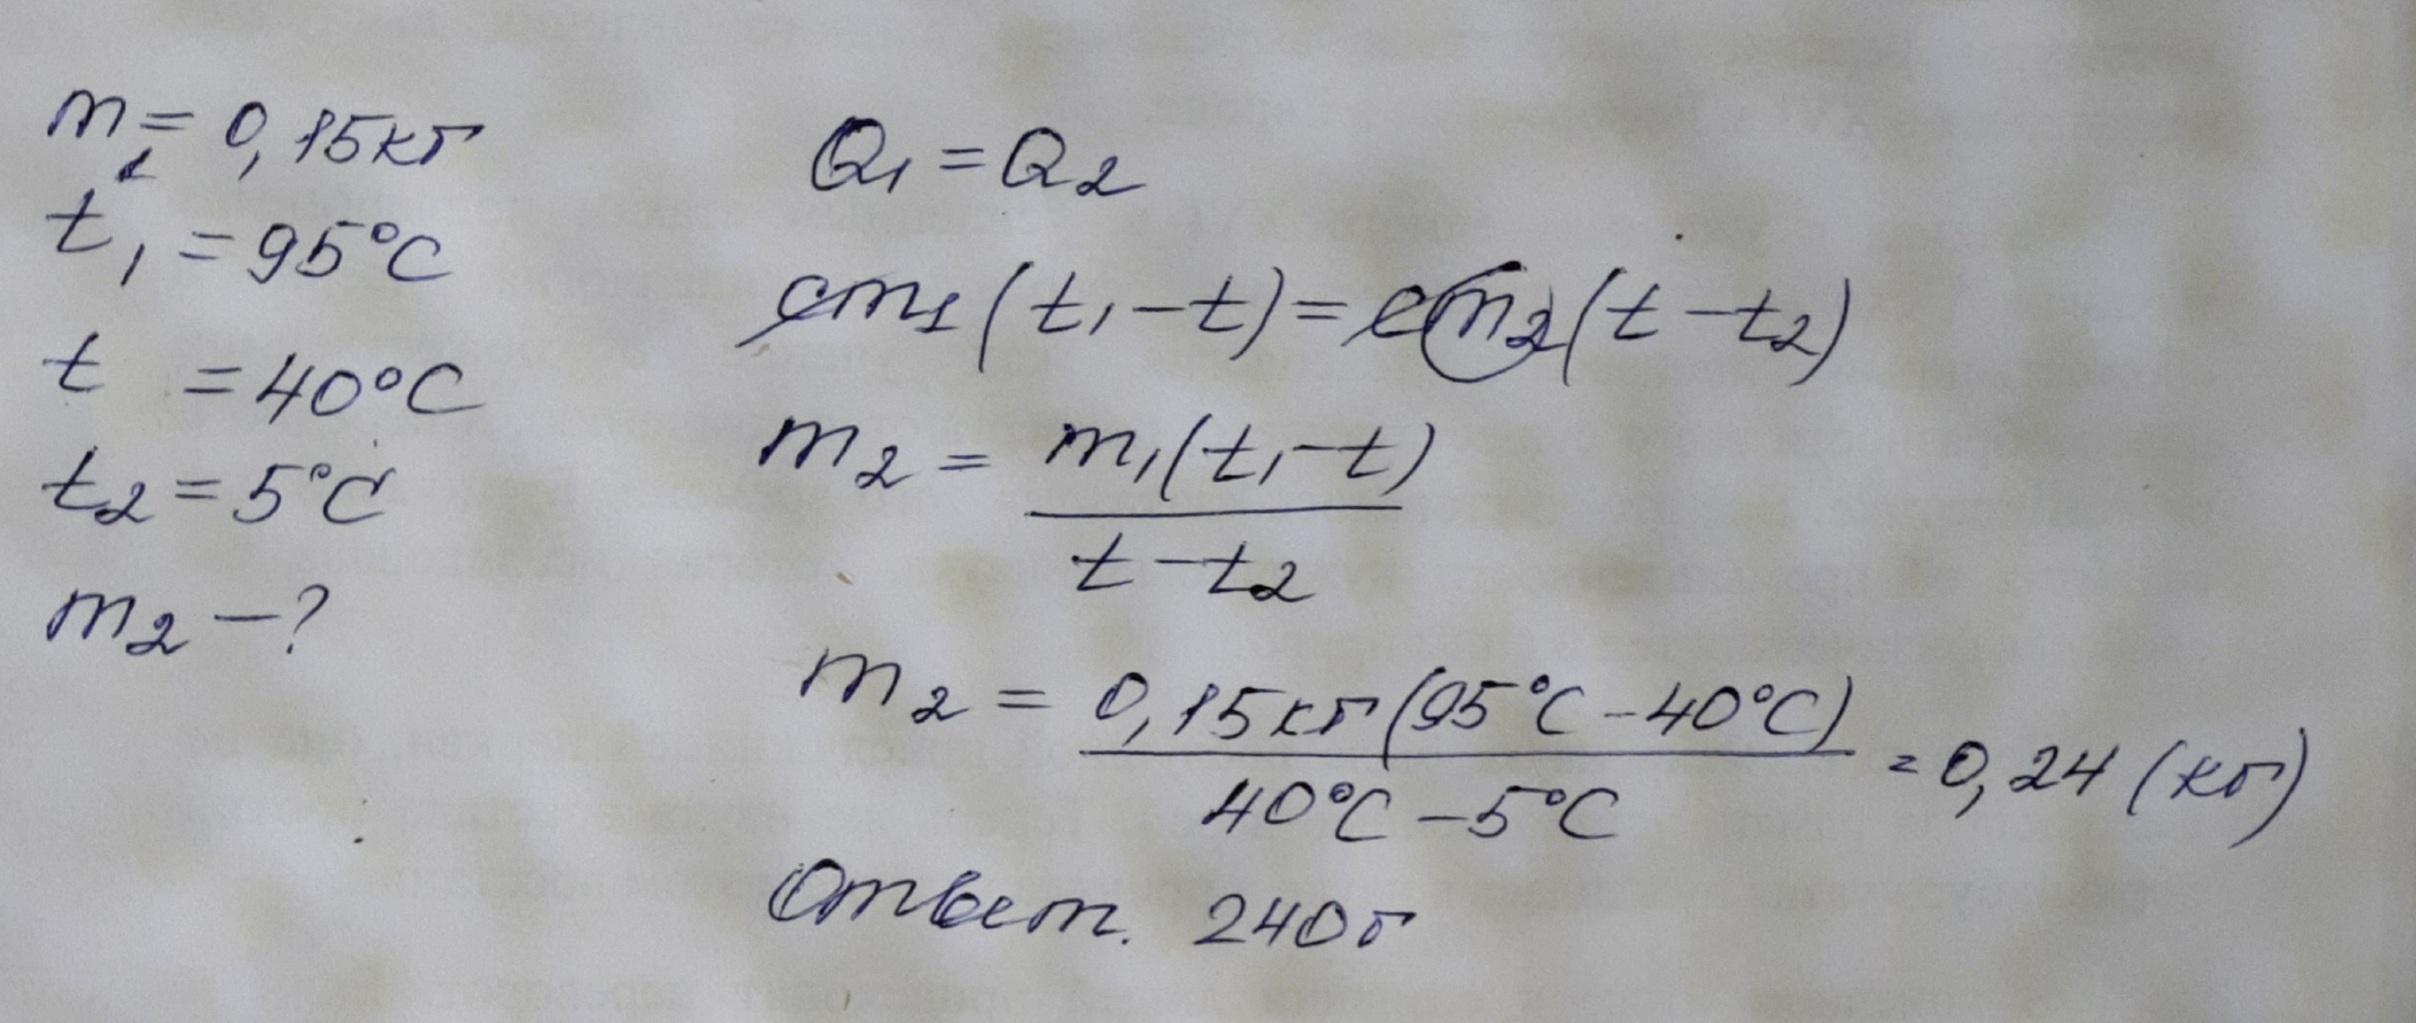 m₁ = 0,15 кг
t₁ = 95°C
t = 40°C
t₂ = 5°C
m₂ – ?
Q₁ = Q₂
cm₁ (t₁ – t) = cm₂ (t – t₂)
m₂ = m₁(t₁ – t) / t – t₂
m₂ = 0,15 кг (95°C – 40°C) / 40°C – 5°C = 0,24 (кг)
Ответ. 240 г